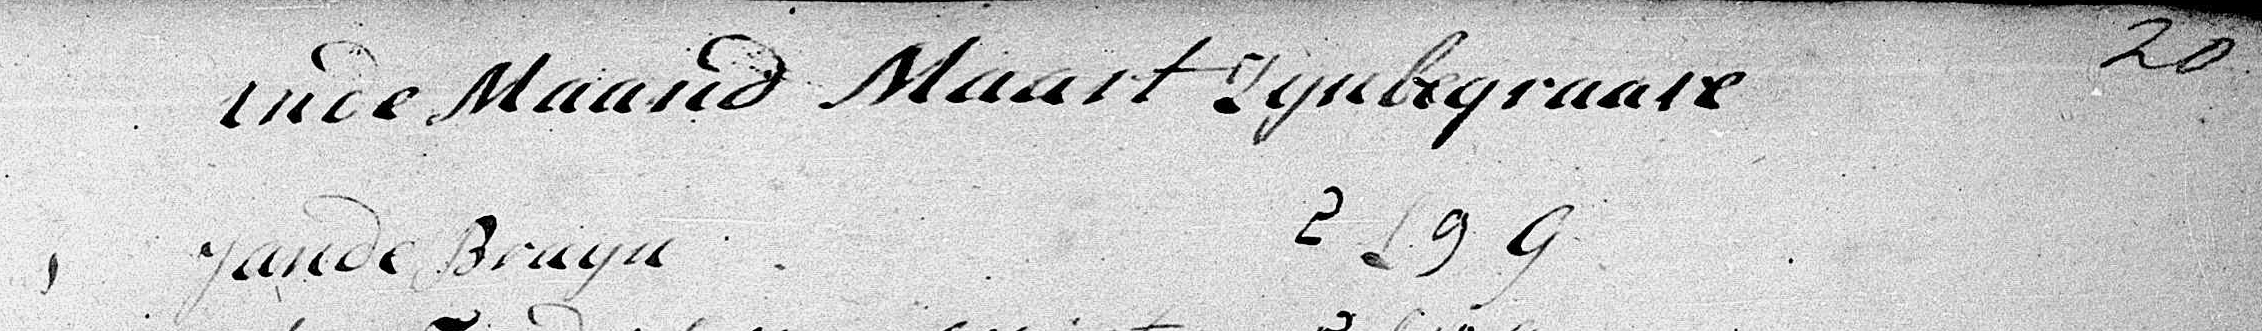 20
inde Maand Maart Zynbegraave
1 Jande Bruyn 2 L 9 G